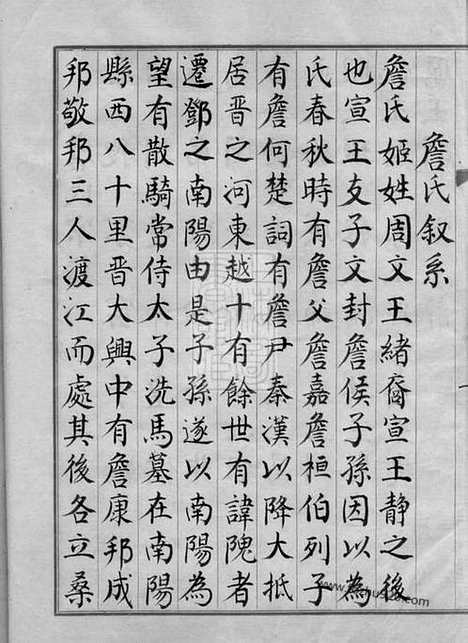 詹氏叙系
詹氏姬姓周文王緒裔宣王静之後
也宣王支子文封詹侯子孫因以為
氏春秋時有詹父詹嘉詹桓伯列子
有詹何楚詞有詹尹秦漢以降大抵
居晋之河東越十有餘世有諱隗者
遷鄧之南陽由是子孫遂以南陽為
望有散騎常侍太子洗馬墓在南陽
縣西八十里晋大興中有詹康邦成
邦敬邦三人渡江而處其後各立桑